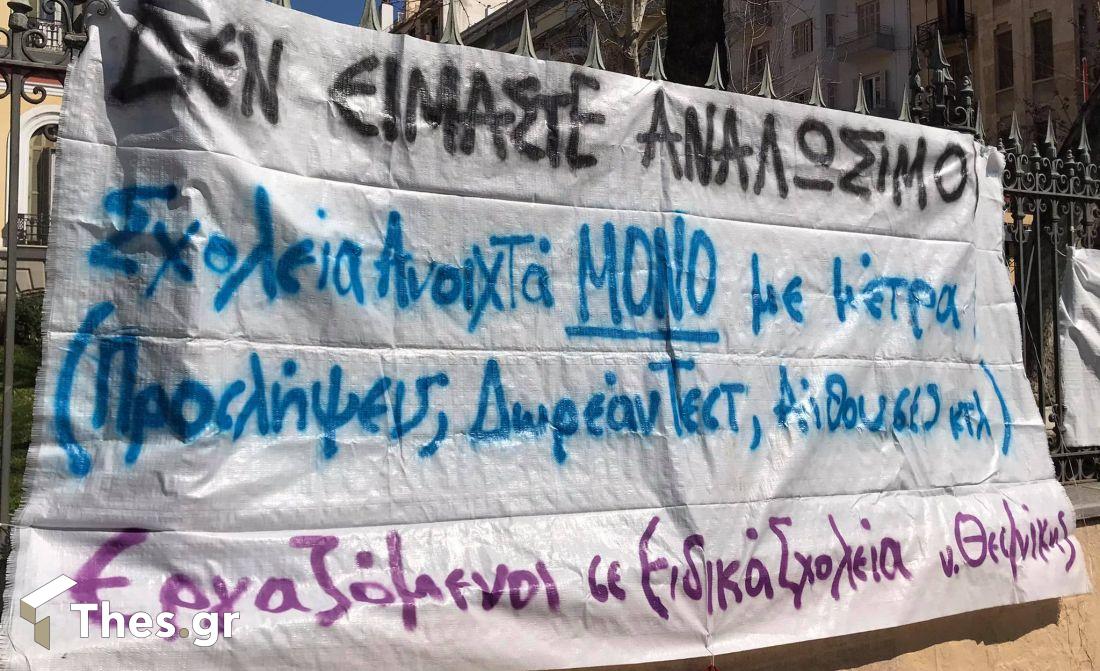 ΔΕΝ ΕΙΜΑΣΤΕ ΑΝΑΛΩΣΙΜΟΙ
Σχολεία Ανοιχτά ΜΟΝΟ με μέτρα
(Προσλήψεις, Δωρεάν Τεστ, Αίθουσες κτλ)
Εργαζόμενοι σε Ειδικά Σχολεία ν. Θεσ/νίκης
Thes.gr